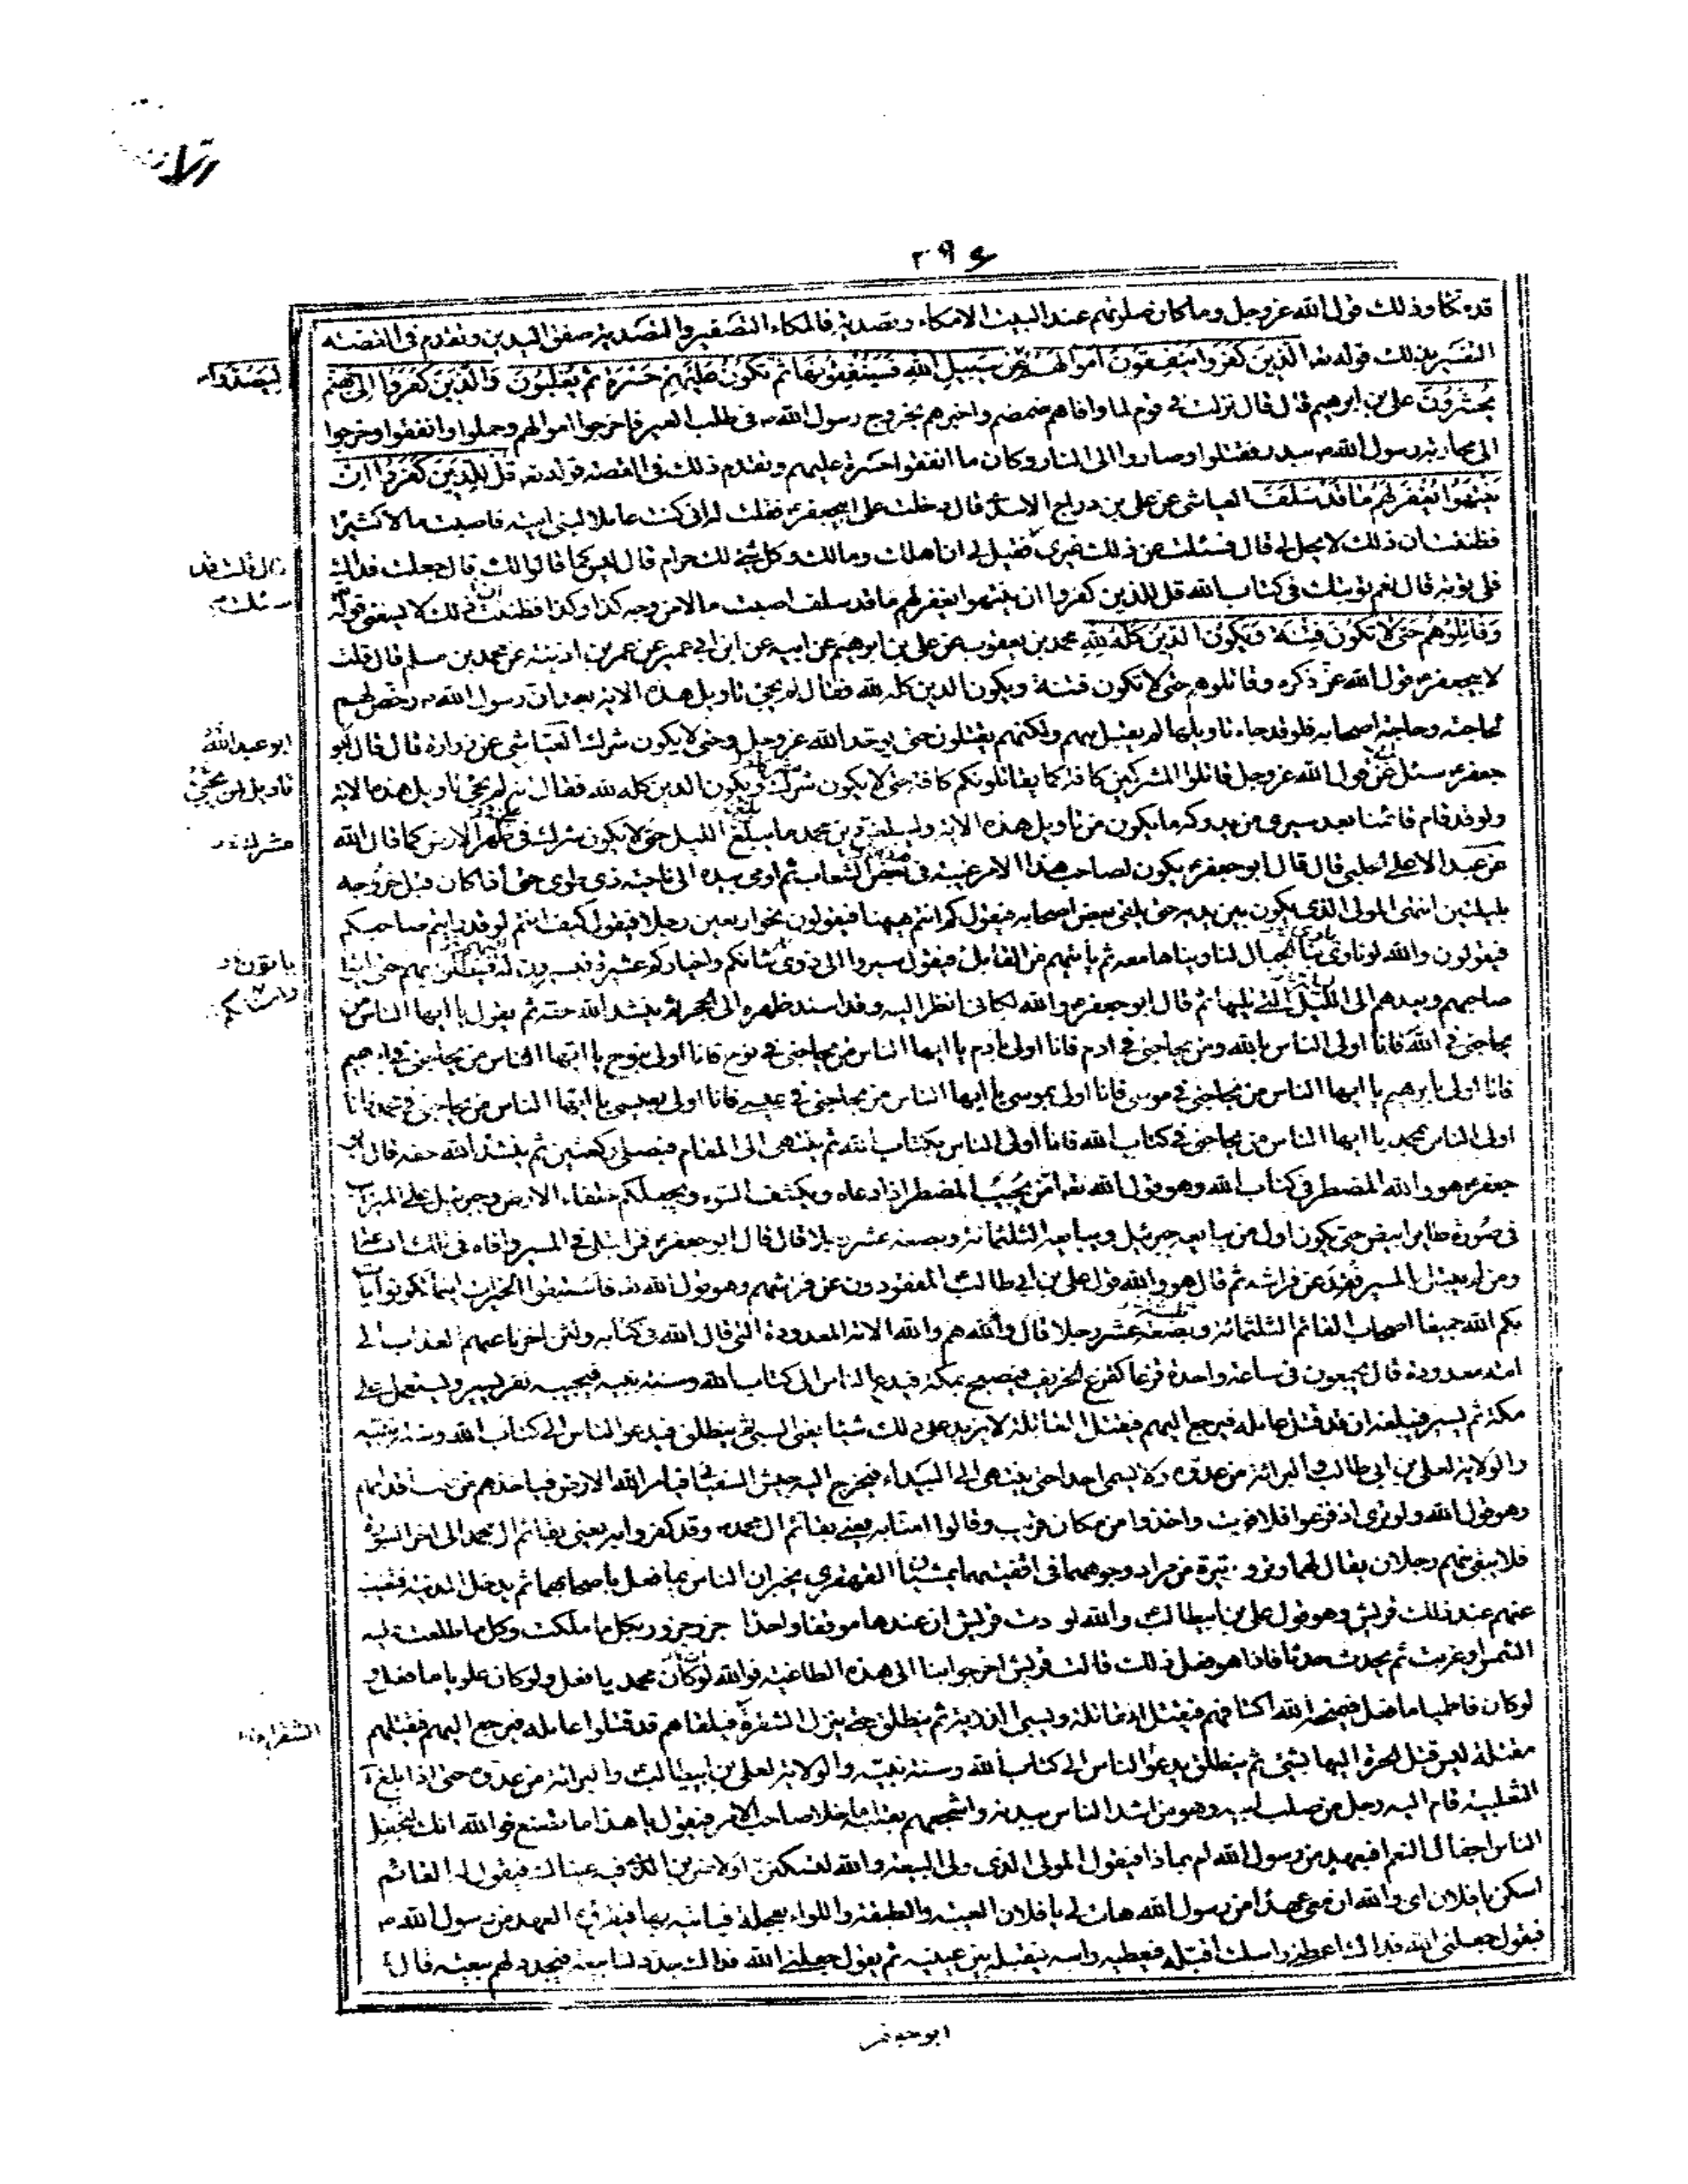 ٣٩۶
قدمكا وذلك قول الله عز وجل وما كان صلوتهم عند البيت الا مكاء وتصدية فالمكاء التصفير والتصدية صفق اليدين وتقدم فى القصة
التفسير بذلك قوله تع الذين كفروا ينفقون اموالهم عن سبيل الله فسينفقونها ثم تكون عليهم حسرة ثم يغلبون والذين كفروا الى جهنم
ليصدوا
يحشرون على بن ابرهيم قال قال نزلت فى قوم لما وافاهم ضمضم واخبرهم بخروج رسول الله ص فى طلب العير فاخرجوا اموالهم وحملوا وانفقوا وخرجوا
الى محاربة رسول الله ص ببدر فقتلوا وصاروا الى النار وكان ما انفقوا حسرة عليهم وتقدم ذلك فى القصة قوله تع قل للذين كفروا ان
ينتهوا يغفر لهم ما قد سلف العياشى عن على بن دراج الاسدى قال دخلت على ابيجعفر ع فقلت له انى كنت عاملا لبنى امية فاصبت مالا كثيرا
فظننت ان ذلك لا يحل لى قال فسئلت عن ذلك غيرى فقيل لى ان اهلك ومالك وكل شئ لك حرام قال ليس كما قالوا لك قال جعلت فداك
قال قلت قد
سئلت
فلى توبة قال نعم توبتك فى كتاب الله قل للذين كفروا ان ينتهوا يغفر لهم ما قد سلف اصبت مالا من وجه كذا وكذا فظننت ذلك لا يسعنى قوله
وقاتلوهم حتى لا تكون فتنة ويكون الدين كله لله محمد بن يعقوب عن على بن ابرهيم عن ابيه عن ابن ابى عمير عن عمر بن اذينة عن محمد بن مسلم قال قلت
لابيجعفر ع قول الله عز ذكره وقاتلوهم حتى لا تكون فتنة ويكون الدين كله لله فقال لم يجئ تاويل هذه الاية بعد ان رسول الله ص رخص لهم
لحاجته وحاجة اصحابه فلو قد جاء تاويلها لم يقبل منهم ولكنهم يقتلون حتى يوحد الله عز وجل وحتى لا يكون شرك العياشى عن زرارة قال قال ابو
ابو عبد الله
جعفر ع سئل عن قول الله عز وجل قاتلوا المشركين كافة كما يقاتلونكم كافة حتى لا يكون شرك ويكون الدين كله لله فقال لم يجئ تاويل هذه الاية
تاويل لم يجئ
ولو قد قام قائمنا بعد سيرى من يدركه ما يكون من تاويل هذه الاية وليبلغن دين محمد ما بلغ الليل حتى لا يكون شرك فى ظهر الارض كما قال الله
مشرك
عن عبد الاعلى الحلبى قال قال ابو جعفر ع يكون لصاحب هذا الامر غيبة فى بعض الشعاب ثم اومى بيده الى ناحية ذى طوى حتى اذا كان قبل خروجه
بليلتين انتهى المولى الذى يكون بين يديه حتى يلقى بعض اصحابه فيقول كم انتم هيهنا فيقولون نحوا ربعين رجلا فيقول كيف انتم لو قد رايتم صاحبكم
فيقولون والله لو ناوى بنا الجبال لناويناها معه ثم ياتيهم من القابل فيقول سيروا الى ذوى شانكم واخياركم عشيرة فيسيرون له فينطلق بهم حتى ياتوا
ياتون
صاحبهم ويعدهم الى الليلة التى تليها ثم قال ابو جعفر ع والله لكانى انظر اليه وقد اسند ظهره الى الحجر ثم ينشد الله حقه ثم يقول يا ايها الناس من
يحاجنى فى الله فانا اولى الناس بالله ومن يحاجنى فى ادم فانا اولى بادم يا ايها الناس من يحاجنى فى نوح فانا اولى بنوح يا ايها الناس من يحاجنى فى ابرهيم
فانا اولى بابرهيم يا ايها الناس من يحاجنى فى موسى فانا اولى بموسى يا ايها الناس من يحاجنى فى عيسى فانا اولى بعيسى يا ايها الناس من يحاجنى فى محمد فانا
اولى الناس بمحمد يا ايها الناس من يحاجنى فى كتاب الله فانا اولى الناس بكتاب الله ثم ينتهى الى المقام فيصلى ركعتين ثم ينشد الله حقه قال ابو
جعفر ع هو والله المضطر فى كتاب الله وهو قول الله تع امن يجيب المضطر اذا دعاه ويكشف السوء ويجعلكم خلفاء الارض وجبرئيل على الميزاب
فى صورة طاير ابيض حتى يكون اول من يبايعه جبرئيل ويبايعه الثلثمائة وبضعة عشر رجلا قال قال ابو جعفر ع فمن ابتلى فى المسير وافاه فى تلك الساعة
ومن لم يبتل بالمسير فقد عن فراشه ثم قال هو والله قول على بن ابى طالب المفقودون عن فرشهم وهو قول الله تع فاستبقوا الخيرات اينما تكونوا يات
بكم الله جميعا اصحاب القائم الثلثمائة وبضعة عشر رجلا قال والله هم والله الامة المعدودة التى قال الله فى كتابه ولئن اخرنا عنهم العذاب الى
امة معدودة قال يجمعون فى ساعة واحدة قزعا كقزع الخريف فيصبح بمكة فيدعو الناس الى كتاب الله وسنة نبيه فيجيبه نفر يسير ويستعمل على
مكة ثم يسير فيبلغه ان قد قتل عامله فيرجع اليهم فيقتل المقاتلة لا يزيد على ذلك شيئا يعنى السبى ثم ينطلق فيدعو الناس الى كتاب الله وسنة نبيه
والولاية لعلى بن ابى طالب والبرائة من عدوه ولا يسمى احدا حتى ينتهى الى البيداء فيخرج اليه جيش السفيانى فيامر الله الارض فياخذهم من تحت اقدامهم
وهو قول الله ولو ترى اذ فزعوا فلا فوت واخذوا من مكان قريب وقالوا امنا به يعنى بقائم ال محمد ص وقد كفروا به يعنى بقائم ال محمد الى اخر السورة
فلا يبقى منهم رجلان يقال لهما وتر ووتيرة من مراد وجوههما فى اقفيتهما يمشيان القهقرى يخبران الناس بما فعل باصحابهما ثم يدخل المدينة فتغيب
عنهم عند ذلك قريش وهو قول على بن ابيطالب والله لودت قريش ان عندها موقفا واحدا جزر جزور بكل ما ملكت وكل ما طلعت عليه
الشمس او غربت ثم يحدث حدثا فاذا هو فعل ذلك قالت قريش اخرجوا بنا الى هذه الطاغية فوالله لو كان محمديا ما فعل ولو كان علويا ما فعل و
لو كان فاطميا ما فعل فيمنحه الله اكتافهم فيقتل المقاتلة ويسبى الذرية ثم ينطلق حتى ينزل الشقرة فيبلغه انهم قد قتلوا عامله فيرجع اليهم فيقتلهم
مقتلة ليس قتل الحرة اليها بشئ ثم ينطلق يدعو الناس الى كتاب الله وسنة نبيه والولاية لعلى بن ابيطالب والبرائة من عدوه حتى اذا بلغ
الثعلبية قام اليه رجل من صلب ابيه وهو من اشد الناس ببدنه واشجعهم بقلبه ما خلا صاحب الامر فيقول يا هذا ما تصنع فوالله انك لتجفل
الناس اجفال النعم افبعهد من رسول الله ام بماذا فيقول المولى الذى ولى البيعة والله لتسكنن او لاضربن الذى فيه عيناك فيقول له القائم
اسكن يا فلان اى والله ان معى عهدا من رسول الله هات لى يا فلان العيبة والطبقة واللواء بعجلة فياتيه بها فيقرئه العهد من رسول الله ص
فيقول جعلنى الله فداك اعطنى راسك اقبله فيعطيه راسه فيقبله بين عينيه ثم يقول جعلنى الله فداك جدد لنا بيعة فيجدد لهم بيعة قال
ابو جعفر